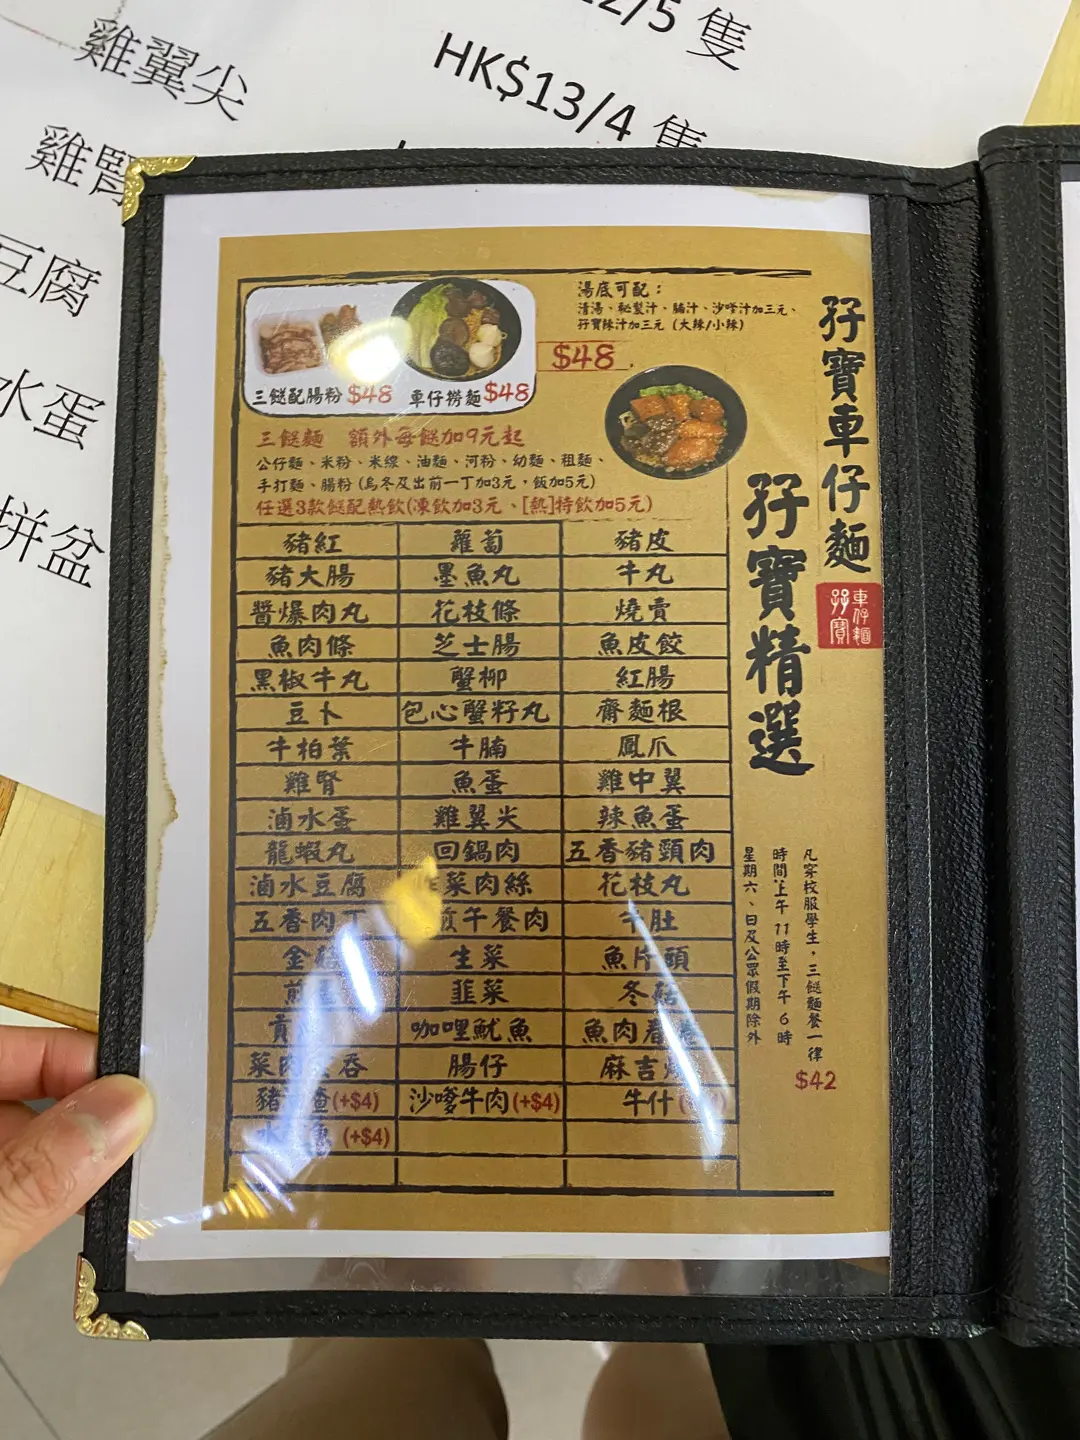 雞翼尖
雞腎
豆腐
水蛋
拼盆
/5 隻
HK$13/4 隻
孖寶車仔麵
孖寶
車仔麵
孖寶精選
湯底可配：
清湯、秘製汁、腩汁、沙嗲汁加三元、
孖寶辣汁加三元 (大辣/小辣)
$48
三餸配腸粉 $48 車仔撈麵 $48
三餸麵 額外每餸加9元起
公仔麵、米粉、米線、油麵、河粉、幼麵、粗麵、
手打麵、腸粉 (烏冬及出前一丁加3元，飯加5元)
任選3款餸配熱飲(凍飲加3元、[熱]特飲加5元)
豬紅 蘿蔔 豬皮
豬大腸 墨魚丸 牛丸
醬爆肉丸 花枝條 燒賣
魚肉條 芝士腸 魚皮餃
黑椒牛丸 蟹柳 紅腸
豆卜 包心蟹籽丸 齋麵根
牛柏葉 牛腩 鳳爪
雞腎 魚蛋 雞中翼
滷水蛋 雞翼尖 辣魚蛋
龍蝦丸 回鍋肉 五香豬頸肉
滷水豆腐 菜肉絲 花枝丸
五香肉丁 煎午餐肉 牛肚
金菇 生菜 魚片頭
煎 韮菜 冬菇
貢 咖哩魷魚 魚肉春卷
菜肉雲吞 腸仔 麻吉燒
豬 渣(+$4) 沙嗲牛肉(+$4) 牛什
水 魚 (+$4)
凡穿校服學生，三餸麵餐一律
$42
時間：上午 11時至下午 6時
星期六、日及公眾假期除外